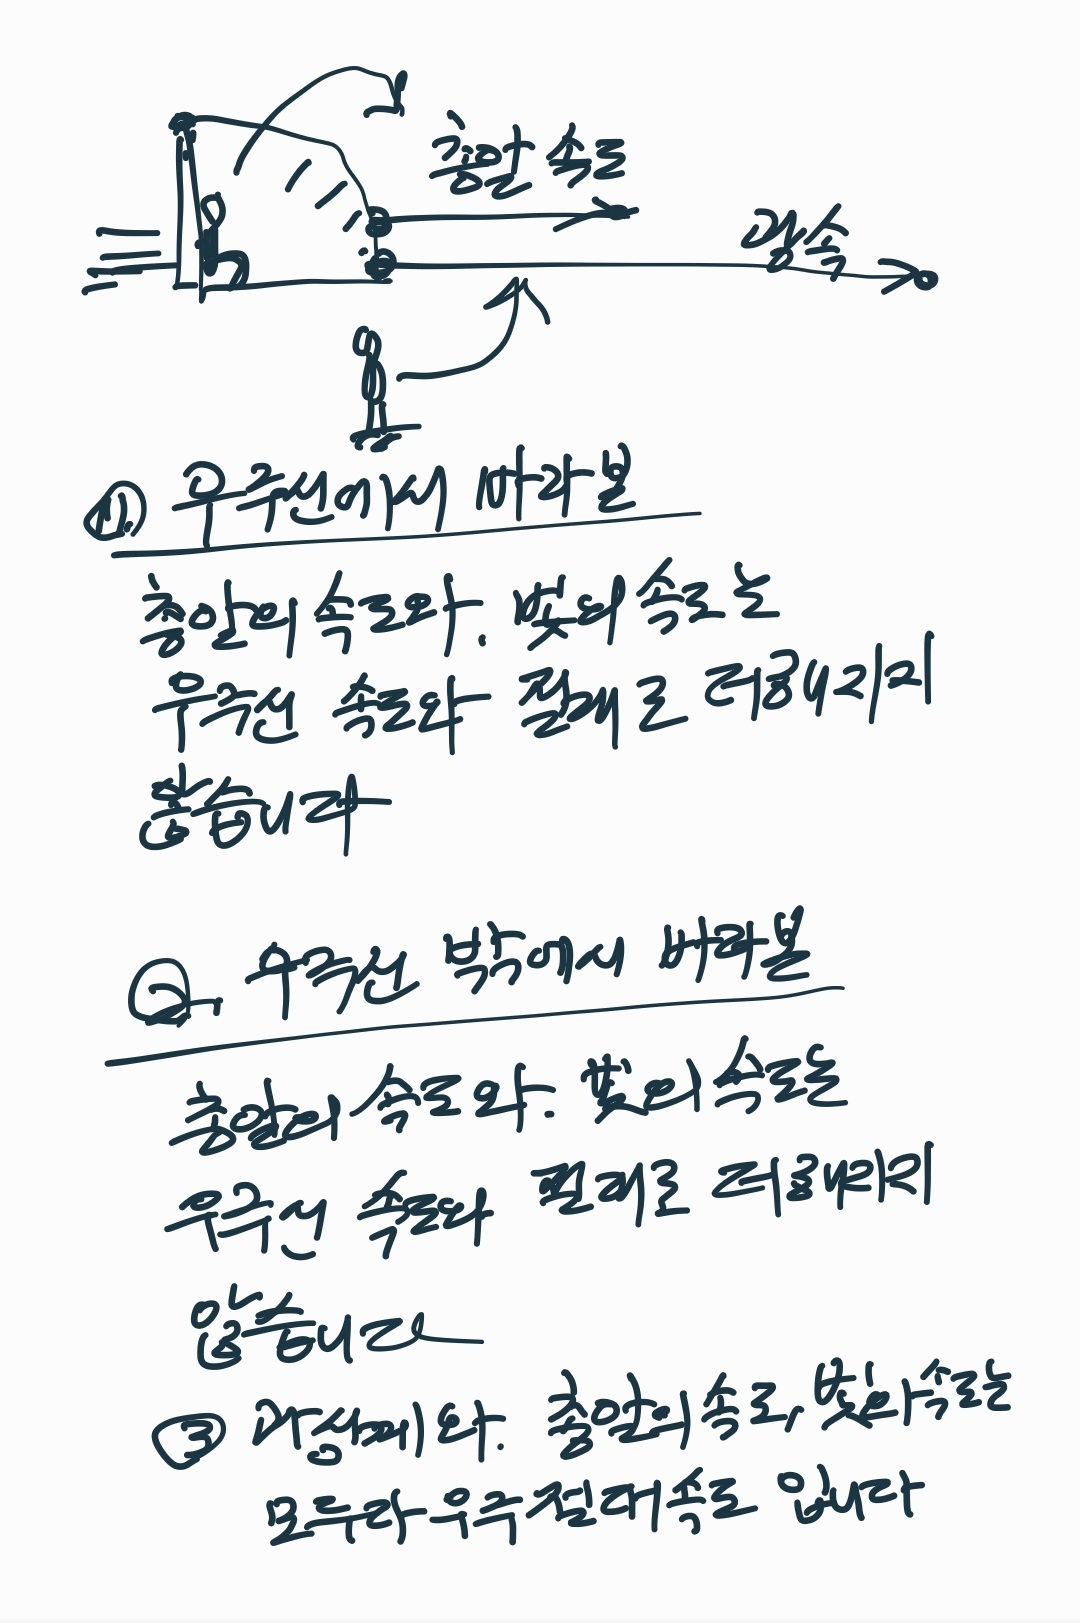 총알 속도
광속
① 우주선에서 바라본
총알의 속도와. 빛의 속도는
우주선 속도와 절대로 더해지지
않습니다
②. 우주선 밖에서 바라본
총알의 속도와. 빛의 속도는
우주선 속도와 절대로 더해지지
않습니다
③ 와. 총알의 속도, 빛의 속도는
모두다 우주절대속도 입니다